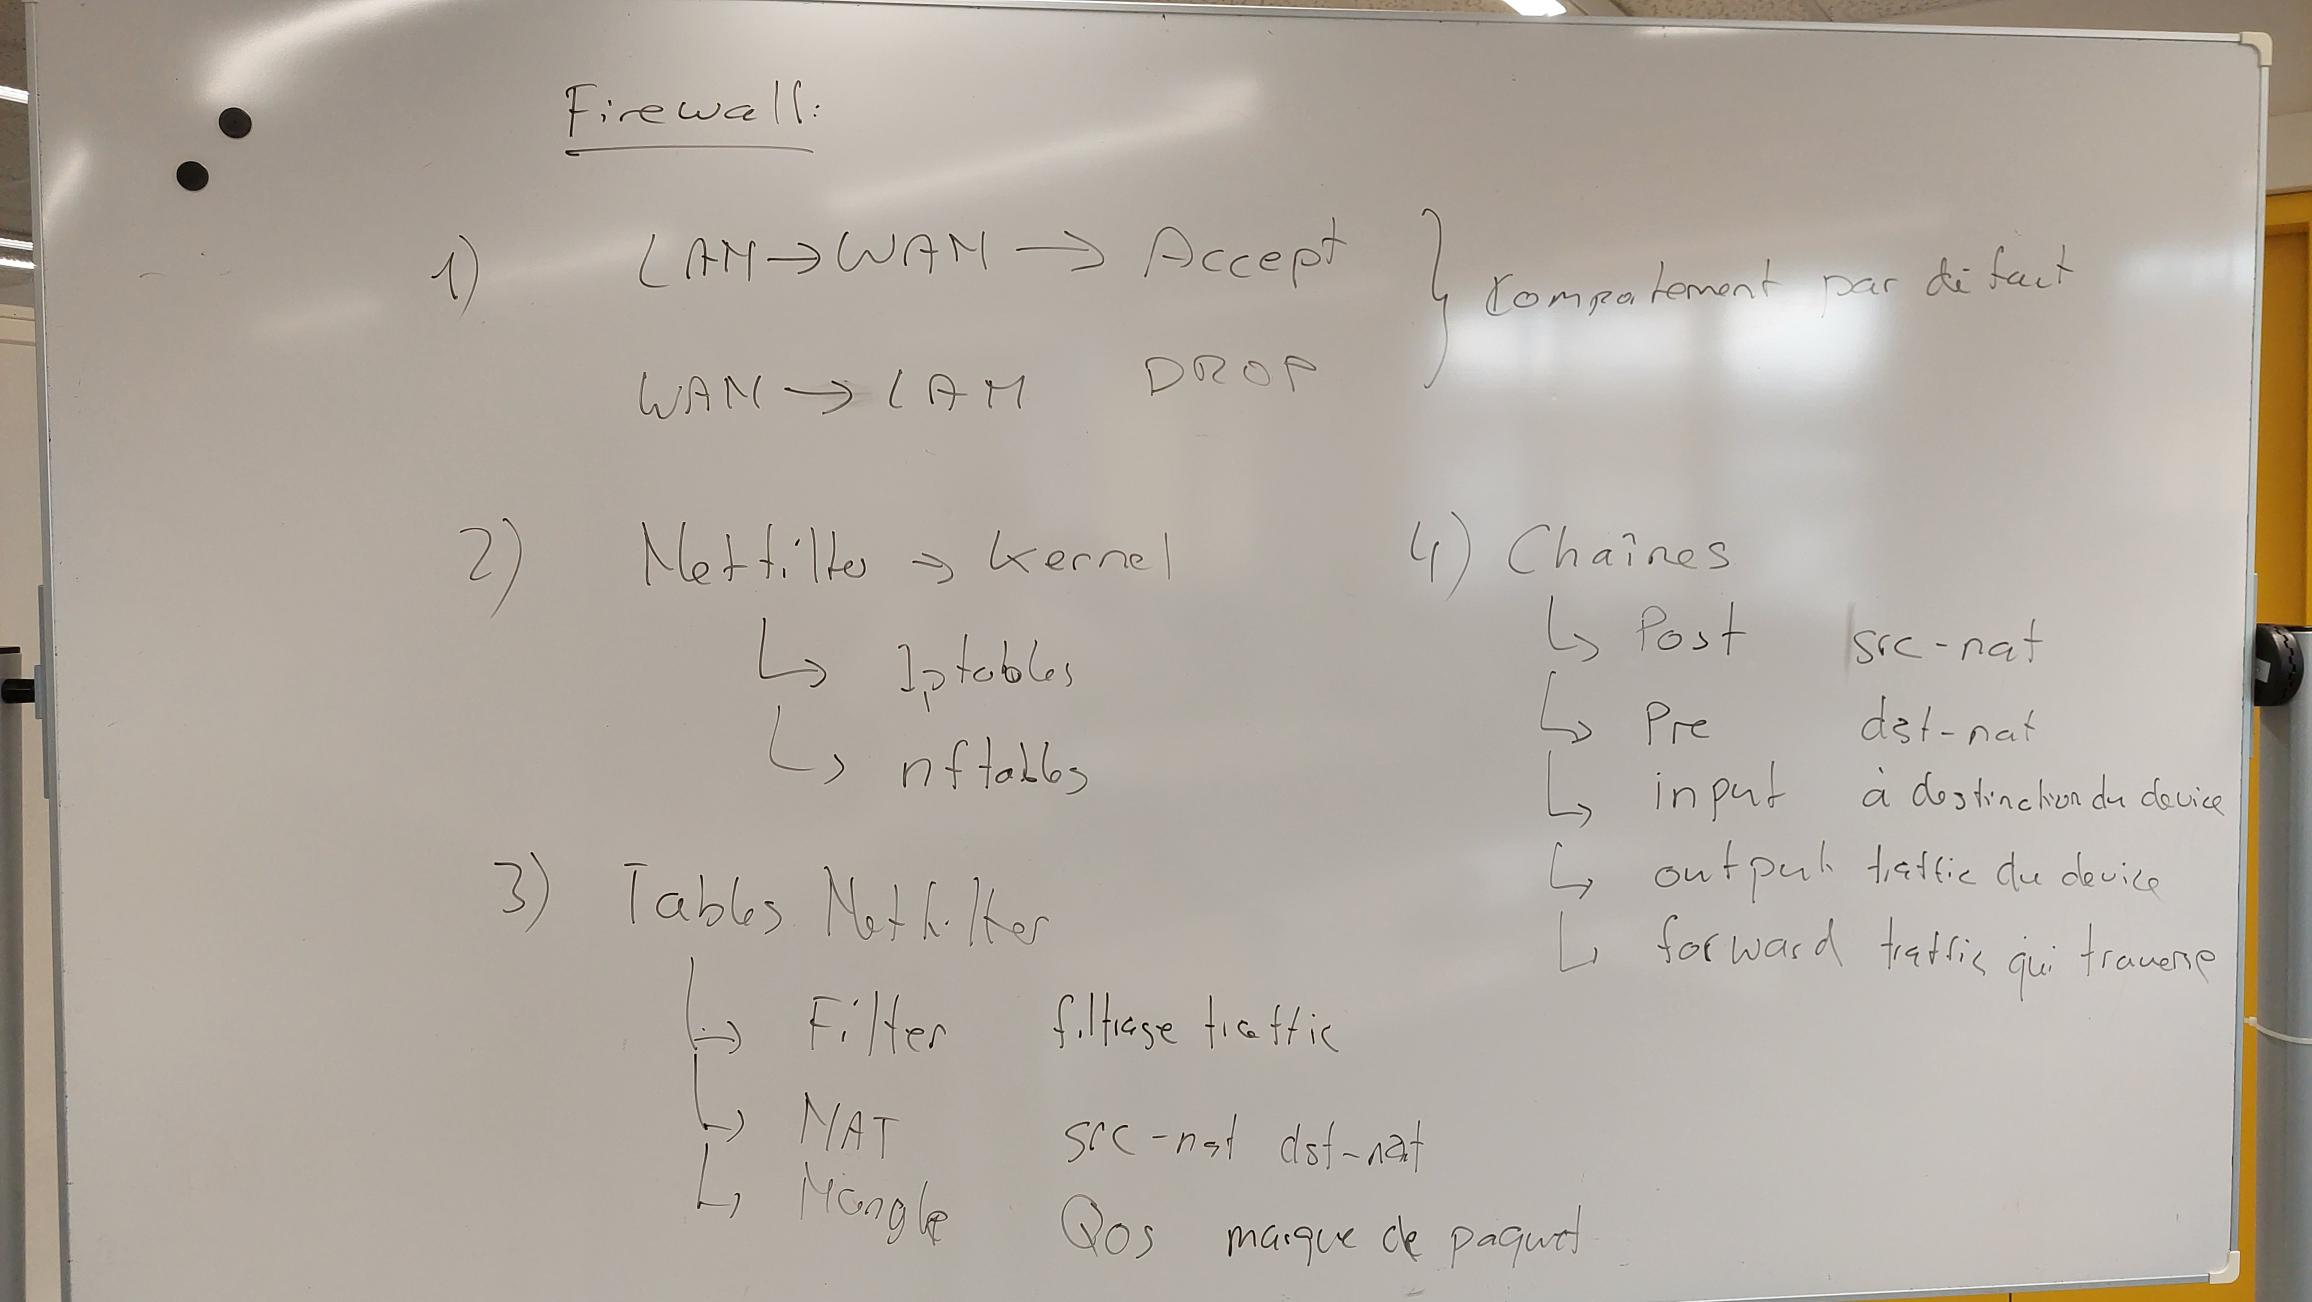 Firewall:
1) LAN → WAN → Accept
WAN → LAN DROP
} Comportement par défaut
2) Netfilter → Kernel
↳ Iptables
↳ nftables
3) Tables Netfilter
↳ Filter filtrage traffic
↳ NAT src-nat dst-nat
↳ Mangle QoS marque de paquet
4) Chaînes
↳ Post src-nat
↳ Pre dst-nat
↳ input à destinction du device
↳ output traffic du device
↳ forward traffic qui traverse